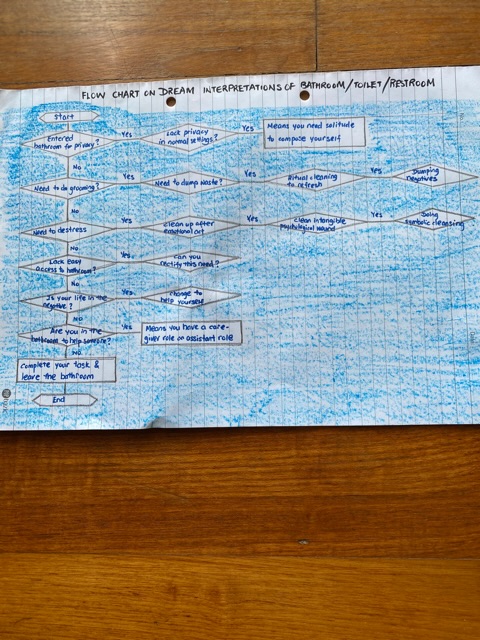 FLOW CHART ON DREAM INTERPRETATIONS OF BATHROOM/TOILET/RESTROOM
Start
Entered
bathroom for privacy?
Yes
Lack privacy
in normal settings?
Yes
Means you need solitude
to compose yourself
No
Need to do grooming?
Yes
Need to dump waste?
Yes
Ritual cleaning
to refresh
Yes
Dumping
negatives
No
Need to destress
Yes
Clean up after
emotional act
Yes
Clean intangible
psychological wound
Yes
Doing
symbolic cleansing
No
Lack easy
access to bathroom?
Yes
Can you
rectify this need?
No
Is your life in the
negative?
Yes
Change to
help yourself
No
Are you in the
bathroom to help someone?
Yes
Means you have a care-
giver role or assistant role
No
Complete your task &
leave the bathroom
End